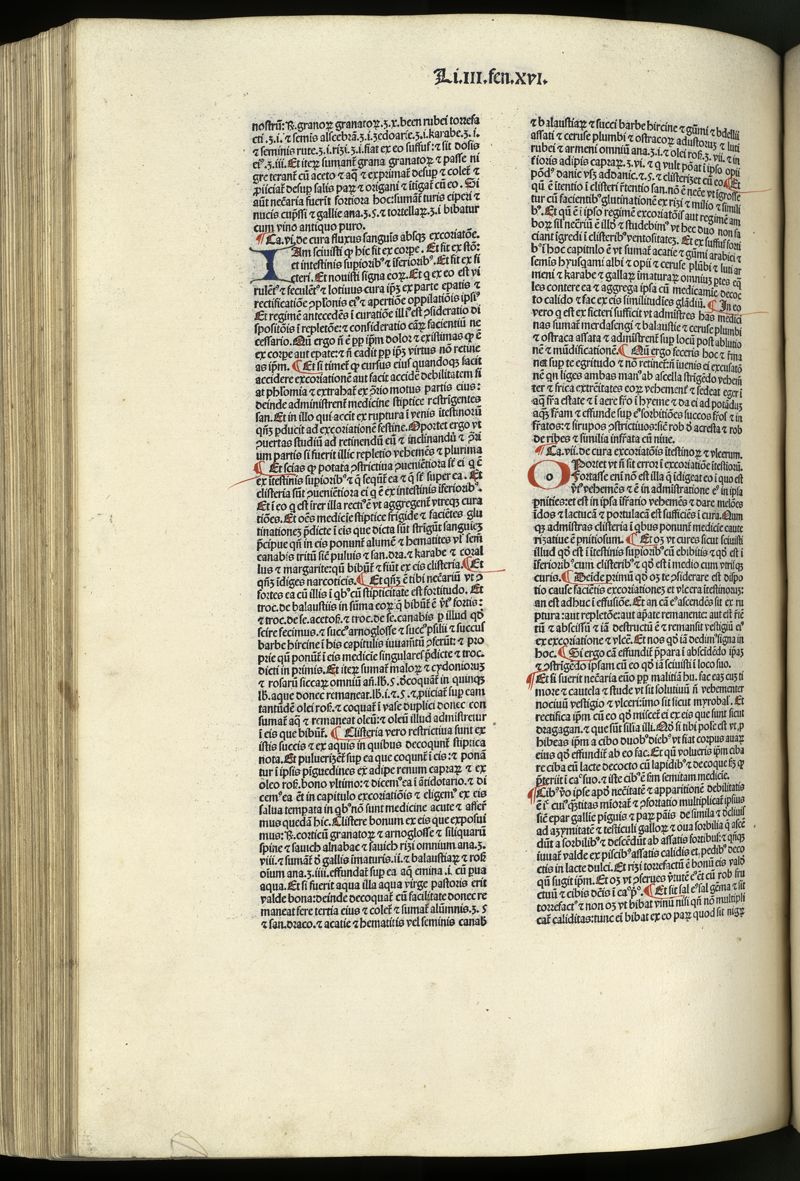 Li.III.fen.XVI.
nostrũ: ℞. granoꝝ granatoꝝ.ʒ.x.been rubei torrefa
cti.ʒ.i. ⁊ semis ʒ.i.ʒedoarie.ʒ.i.karabe.ʒ.i.
⁊ seminis rute.ʒ.i.riʒi.ʒ.i.fiat ex eo suffuf: ⁊ sit dosis
eiꝰ.ʒ.iii. Et iterꝫ sumant̃ grana granatoꝝ ⁊ passe ni
gre terant̃ cũ aceto ⁊ aq̃ ⁊ exprimat̃ desup ⁊ colet̃ ⁊
ꝓiiciat̃ desup salis paꝝ ⁊ origani ⁊ cũ eo. Si
aũt necãria fuerit fortiora hoc: sumant̃ turis ciperi ⁊
nucis cup̃ssi ⁊ gallie ana.ʒ.5. ⁊ tortellaꝝ.ʒ.i bibatur
cum vino antiquo puro.
¶ Ca.vi. de cura fluxus sanguis absqꝫ excoriatõe.
IAm scivisti ꝙ hic sit ex corpe. Et sit ex stõ:
et intestinis supioribꝰ ⁊ ĩferioribꝰ. Et sit ex fi
cteri. Et novisti signa eoꝝ. Et q ex eo est vi
rulẽtꝰ ⁊ feculẽtꝰ ⁊ lotivus cura ipꝫ ex parte epatis ⁊
rectificatiõe ꝯplõnis eiꝰ ⁊ apertiõe oppilatiõis ipsiꝰ
Et regimẽ antecedẽs ĩ curatiõe illi ꝰest ꝯsideratio di
spositiõis ĩ repletõe: ⁊ consideratio eãꝝ facientiũ ne
cessario. Qũ ergo ñ ẽ pp̃ ip̃m dolor ⁊ existimas ꝙ ẽ
ex corpe aut epate: ⁊ ñ eadit pp̃ ipꝫ virtus nõ retine
as ip̃m. ¶ Et si timet̃ ꝙ cursus eius quandoqꝫ facit
accidere excoriationẽ aut facit accidẽ debilitatem fi
at phl'omia ⁊ extrahat̃ ex ꝯ̃rio motus partis eius:
deinde administrent̃ medicine stiptice restrigentes
san. Et in illo qui accit ex ruptura ĩ venis ĩtestinorũ
qñꝫ ꝑducit ad excoriationẽ festine. Oportet ergo vt
ꝯuertas studiũ ad retinendũ eũ ⁊ inclinãdũ ⁊ ꝯ̃ri
um partis si fuerit illic repletio vehemẽs ⁊ plurima
¶ Et scias ꝙ potata ꝯstrictiva ꝯueniẽtiora sẽ ei q ẽ
ex ĩtestinis supioribꝰ ⁊ q̃ sequũt̃ ea ⁊ q̃ sẽ super ea. Et
clisteria sũt ꝯueniẽtiora ei q ẽ ex intestinis ĩferioribꝰ.
Et ĩ eo q est ĩter illa rectũ ẽ vt aggregent̃ vtreqꝫ cura
tiões. Et oẽs medicie stiptice frigide ⁊ faciẽtes glu
tinationeꝫ ꝑdicte ĩ eis que dicta sũt strĩgũt sanguieꝫ
p̃cipue qñ in eis ponunt̃ alumẽ ⁊ hematites vl' sem̃
canabis tritũ siẽ puluis ⁊ san.dra. ⁊ karabe ⁊ coral
lus ⁊ margarite: qũ bibũt̃ ⁊ fiũt ex eis clisteria. ¶ Et
qñꝫ ĩdiges narcoticis. ¶ Et qñꝫ ẽ tibi necãriũ vt ꝯ
fortes ea cũ illis ĩ qbꝰcũ stipticitate est fortitudo. Et
troc. de balaustiis in sũma eoꝝ q̃ bibũt̃ ẽ vl'ẽ fortis:
⁊ troc. de se.acetoẽ. ⁊ troc. de se.canabis p illud qð
scire fecimus. ⁊ succꝰ arnoglosse ⁊ succꝰ psilii ⁊ succus
barbe hircine ĩ his capitulis iuuamẽtũ ꝓserũt: ⁊ pro
prie qũ ponũt̃ ĩ eis medicie singulares p̃dicte ⁊ troc.
dicti in primis. Et iterꝫ sumat̃ maloꝝ ⁊ cydonioruꝫ
⁊ rosarũ siccaꝝ omniũ añ.lb.5. ⁊coquãt in quinqꝫ
lb.aque donec remaneat.lb.i. ⁊.5. ⁊ ꝓiiciat̃ sup eam
tantũdẽ olei roẽ. ⁊ coquat̃ ĩ vase duplici donec con
sumat̃ aq̃ ⁊ remaneat oleũ: ⁊ oleũ illud administretur
ĩ eis que bibũt̃. ¶ Clisteria vero restrictiua sunt ex
istis succis ⁊ ex aquis in quibus decoqunt̃ stiptica
nota. Et puluerizẽt̃ sup ea que coqunt̃ ĩ eis: ⁊ ponã
tur ĩ ipsis pĩguedines ex adipe renum capraꝝ ⁊ ex
oleo roẽ. bono vltimo: ⁊ dicemꝰ ea ĩ ãntidotario. ⁊ di
cemꝰ ea ẽt in capitulo excoriatiõis ⁊ eligemꝰ ex eis
salua tempata in qbꝰ nõ sunt medicine acute ⁊ affer̃
mus quedã hic. Clistere bonum ex eis que exposui
mus: ℞. corticũ granatoꝝ ⁊ arnoglosse ⁊ siliquarũ
spine ⁊ sauich alnabac ⁊ sauich riʒi omnium ana.ʒ.
viii. ⁊ sumat̃ ð gallis ĩmaturis.ii. ⁊ balaustiaꝝ ⁊ roẽ
oium ana.ʒ.iiii. effundat̃ sup ea aq̃ emina .i. cũ pua
aqua. Et si fuerit aqua illa aqua virge pastoris erit
valde bona: deinde decoquat̃ cũ facilitate donec re
maneat fere tertia eius ⁊ colet̃ ⁊ sumat̃ alũmnis.ʒ.5
⁊ san.draco. ⁊ acatie ⁊ hematitis vel seminis canab
⁊ balaustiaꝝ ⁊ succi barbe hircine ⁊ gũmi ⁊ bdellii
assati ⁊ ceruse plumbi ⁊ ostracoꝝ adustoruꝫ ⁊ luti
rubei ⁊ armeni omniũ ana.ʒ.i. ⁊ olei roẽ.ʒ.vii. ⁊ in
ẽioris adipis capraꝝ.ʒ.vi. ⁊ q vult põat ĩ ipso opii
põdꝰ danic vsꝫ ad danic. ⁊.5. ⁊ clisterizet̃ cũ eo. ¶ Et
qũ ẽ ĩtentio ĩ clisteri r̃tentio san. nõ ẽ neccẽ vt ĩgrosse
tur cũ facientibꝰ glutinationẽ ex riʒi ⁊ milio ⁊ simili
bꝰ. Et qũ ẽ ĩ ipso regimẽ excoriatõis aut regimẽ am
boꝝ sil' necr̃iũ ẽ illð ⁊ studebimꝰ vt hec duo non fa
ciant ĩgredi ĩ clisteribꝰ ventositateꝫ. Et ex suffuf forti
bꝰ ĩ hoc capitulo ẽ vt sumat̃ acatie ⁊ gũmi arabici ⁊
semis hyusqami albi ⁊ opii ⁊ ceruse plũbi ⁊ luti ar
meni ⁊ karabe ⁊ gallaꝝ ĩmaturaꝝ omniuꝫ ptes eq̃
les contere ea ⁊ aggrega ipsa cũ medicamie decoc
to calido ⁊ fac ex eis similitudiẽs glãdiũ. ¶ In eo
vero q est ex ficteri sufficit vt admĩstres has medici
nas sumat̃ merdasengi ⁊ balaustie ⁊ ceruse plumbi
⁊ ostraca assata ⁊ admĩstrent̃ sup locũ post ablutio
nẽ ⁊ mũdificationẽ. ¶ Qũ ergo feceris hoc ⁊ firma
net sup te egritudo ⁊ nõ retinet̃ ñ iuenis ei excusatõ
nẽ qn liges ambas manꝰ ab ascella strĩgẽdo vehem̃
ter ⁊ frica extrẽitates eoꝝ vehement̃ ⁊ sedeat eger ĩ
aq̃ fr̃a estate ⁊ ĩ aere fr̃o ĩ hyeme ⁊ da ei ad potãduꝫ
aqꝫ fr̃am ⁊ effunde sup eꝰ sorbitiões succos fr̃os' ⁊ in
fr̃atos: ⁊ sirupos ꝯstrictiuos: siẽ rob ð acresta ⁊ rob
de ribes ⁊ similia infr̃ata cũ niue.
¶ Ca.vii. de cura excoriatõis ĩtestinoꝝ ⁊ vlcerum.
OPortet vt ñ sit error ĩ excoriatiõe itestiorũ.
Fortasse enĩ nõ est illa q ĩdigeat eo ĩ quo est
vl'ꝰ vehemẽs ⁊ ẽ in administratione eꝰ in ipsa
pñitieꝫ: et est in ipsa ĩfrĩatio vehemẽs ⁊ dare melões
ĩdos ⁊ lactucã ⁊ portulacã est sufficiẽs ĩ cura. Num
qꝫ admĩstras clisteria ĩ qbus ponunt̃ medicie caute
rizatiue ẽ pñitiosum. ¶ Et oꝫ vt cures sicut sciuisti
illud qð est ĩ ĩtestinis supioribꝰ cũ ebibitis ⁊ qð est ĩ
ĩferioribꝰ cum clisteribꝰ ⁊ qð est ĩ medio cum vtrisqꝫ
curis. ¶ Deĩde primũ qð oꝫ te ꝯsiderare est dispo
tio cause faciẽtis excoriationeꝫ et vlcera ĩtestinoruꝫ:
an est adhuc ĩ effusiõe. Et an cã eꝰ ascendẽs sit ex ru
ptura: aut repletõe: aut ap̃ate remanente: aut est firẽ
tũ ⁊ abscisũ ⁊ iã destructũ ẽ ⁊ remansit vestigiũ eiꝰ
ex excoriatione ⁊ vlcẽ. Et nos qð iã deduximus signa in
hoc. ¶ Si ergo cã effundit̃ p̃para ĩ abscĩdẽdo ipaꝫ
⁊ ꝯstrĩgẽdo ipsam cũ eo qð iã sciuisti ĩ loco suo.
¶ Et si fuerit necãria euõ pp̃ malitiã hu. fac eaꝫ cuꝫ ti
more ⁊ cautela ⁊ stude vt sit solutiuũ ñ vehementer
nociuũ vestigio ⁊ vlceri: imo sit sicut myrobaẽ. Et
rectifica ip̃m cũ eo qð miscet̃ ei ex eis que sunt sicut
dragagan. ⁊ que sũt silia illi. Qð si tibi posẽ est vt p
hibeas ip̃m a cibo duobꝰ diebꝰ vt fiat corpus auar̃
eius qð effundit̃ ab eo fac. Et qũ volueris ip̃m ciba
re ciba eũ lacte decocto cũ lapidibꝰ ⁊ decoque ẽꝫ ꝙ
p̃terit ĩ caꝰ suo. ⁊ iste cibꝰ ẽ ẽm semitam medicie.
¶ Cibꝰ vo ipse apð necĩtatẽ ⁊ apparitionẽ debilitatis
ẽ ĩs̃ cuiꝰ q̃titas miorat̃ ⁊ ꝯfortatio multiplicat̃ ipsius
siẽ epar gallie pĩguis ⁊ paꝝ pãis de simila ⁊ decliuis
ad azymitatẽ ⁊ testiculi galloꝝ ⁊ oua sorbilia q̃ ascẽ
dũt a sorbilibꝰ ⁊ descẽdũt ab assatis fortibus: ⁊ qñqꝫ
iuuat̃ valde ex piscibꝰ assatis calidis et pedibꝰ deco
ctis in lacte dulci. Et riʒi torrefactũ ẽ bonũ eis valð
qũ sugit ip̃m. Et oꝫ vt ꝯserues ṽtutẽ eꝰ ẽt cũ rob fru
ctuũ ⁊ cibis dẽis ĩ ea ꝰp̃ꝰ. ¶ Et sit sal eꝰ sal gẽma ⁊ sit
torrefactꝰ ⁊ non oꝫ vt bibat vinũ nisi qũ nõ multipli
cat̃ caliditas: tunc eĩ bibat ex eo paꝝ quod sit nigꝝ